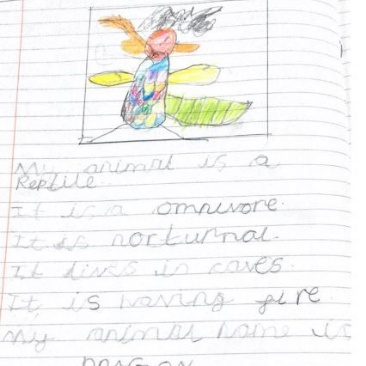 My animal is a
Reptile
It is a omnivore.
It is norturnal.
It lives in caves.
It is having fire
My animal name is